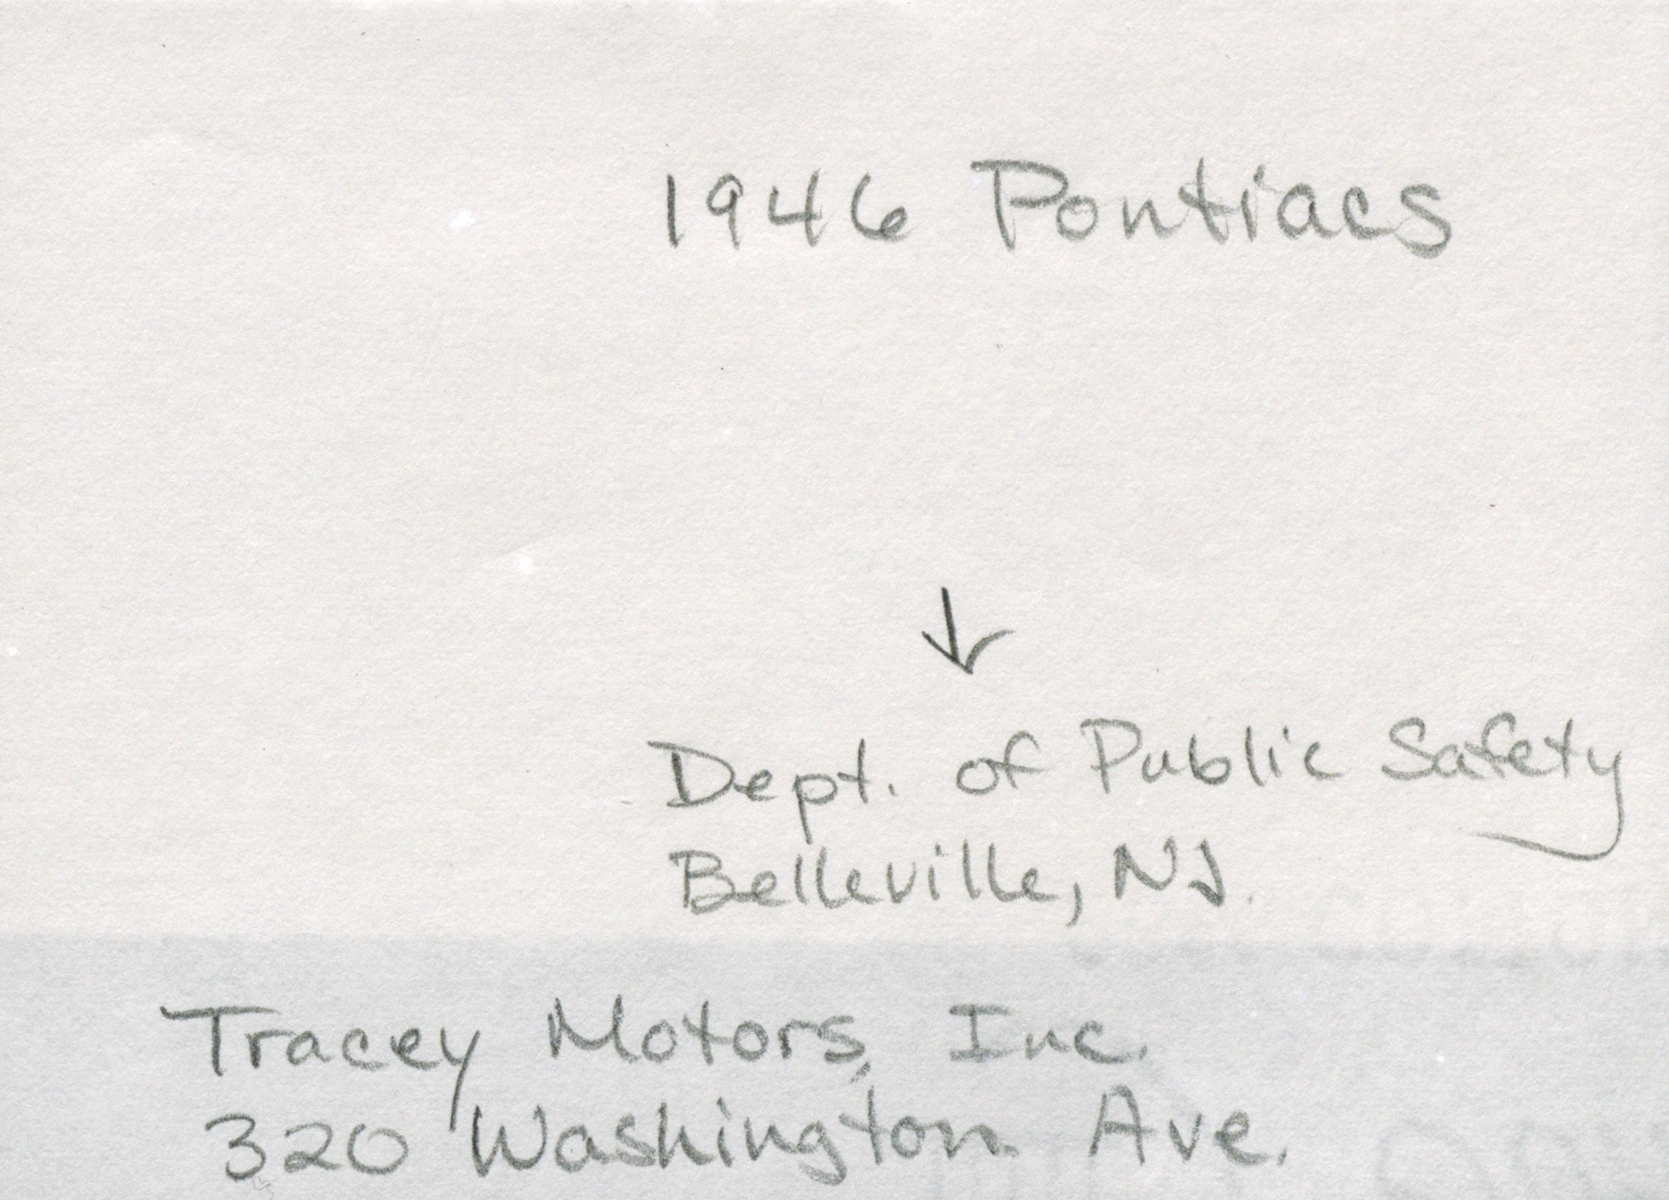 1946 Pontiacs
↓
Dept. of Public Safety
Belleville, NJ.
Tracey Motors, Inc.
320 Washington Ave.